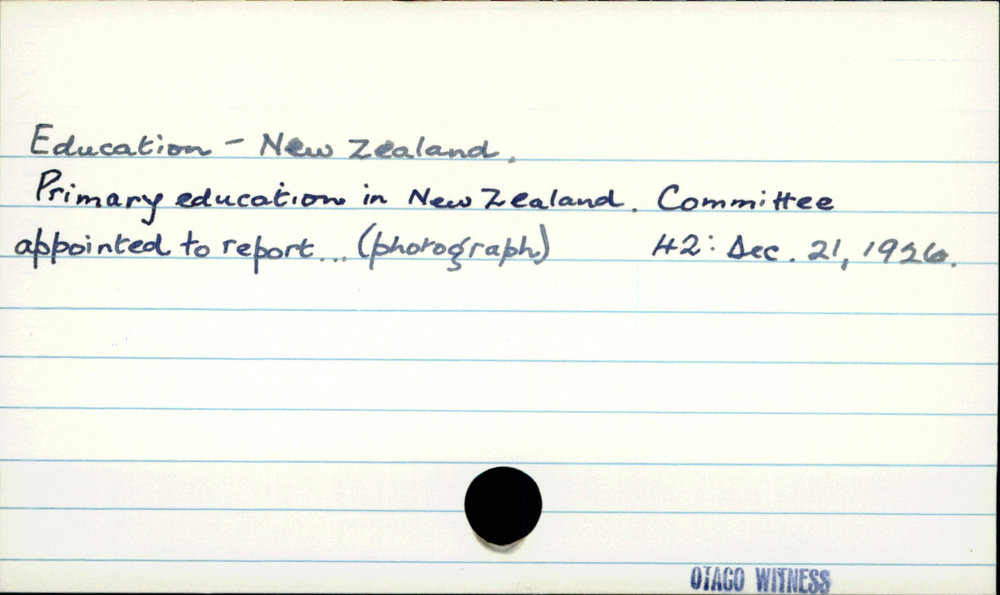 Education - New Zealand.
Primary education in New Zealand. Committee
appointed to report... (photograph) 42: Dec. 21, 1926.
OTAGO WITNESS